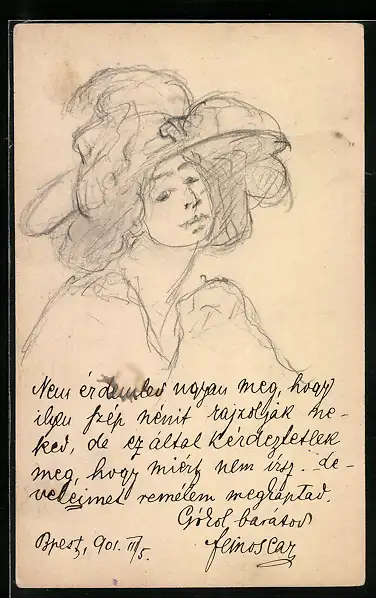 Nem érdemled ugyan meg, hogy
ilyen szép nénit rajzoljak ne-
ked, de ez által kérdeztetlek
meg, hogy miért nem irsz. Le-
veleimet remélem megkaptad.
barátod
Bpest, 901. III/5.